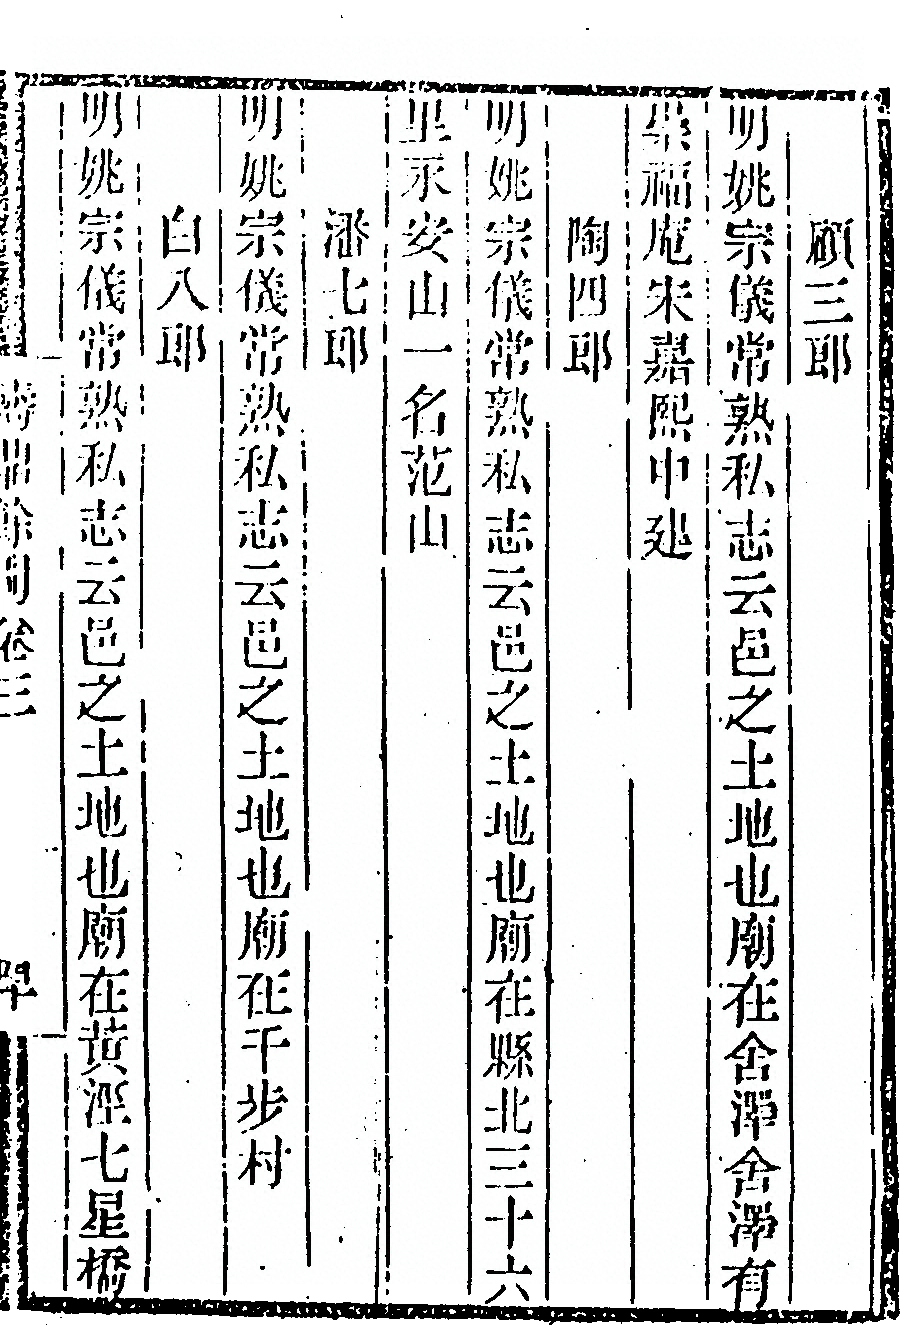 顧三郎
明姚宗儀常熟私志云邑之土地也廟在舍澤舍澤有
福庵宋嘉熙中建
陶四郎
明姚宗儀常熟私志云邑之土地也廟在縣北三十六
里永安山一名范山
潘七郎
明姚宗儀常熟私志云邑之土地也廟在千步村
白八郎
明姚宗儀常熟私志云邑之土地也廟在黃涇七星橋
鑄鼎餘聞卷三